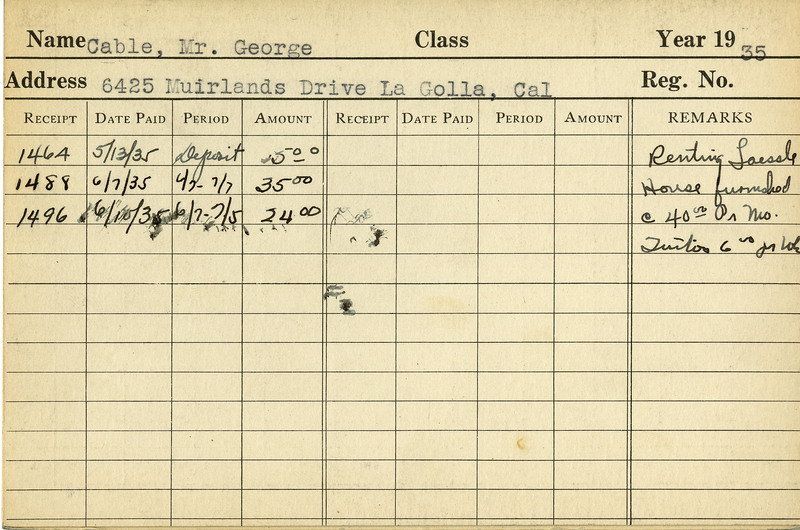 Name Cable, Mr. George Class Year 19 35
Address 6425 Muirlands Drive La Golla, Cal Reg. No.
RECEIPT DATE PAID PERIOD AMOUNT RECEIPT DATE PAID PERIOD AMOUNT REMARKS
1464 5/13/35 Deposit 5.00 Renting
1488 6/7/35 6/7-7/7 35.00 House furnished
1496 6/10/35 6/7-7/5 24.00 @ 40.00 Pr Mo.
Tuition 6.00 pr Wk